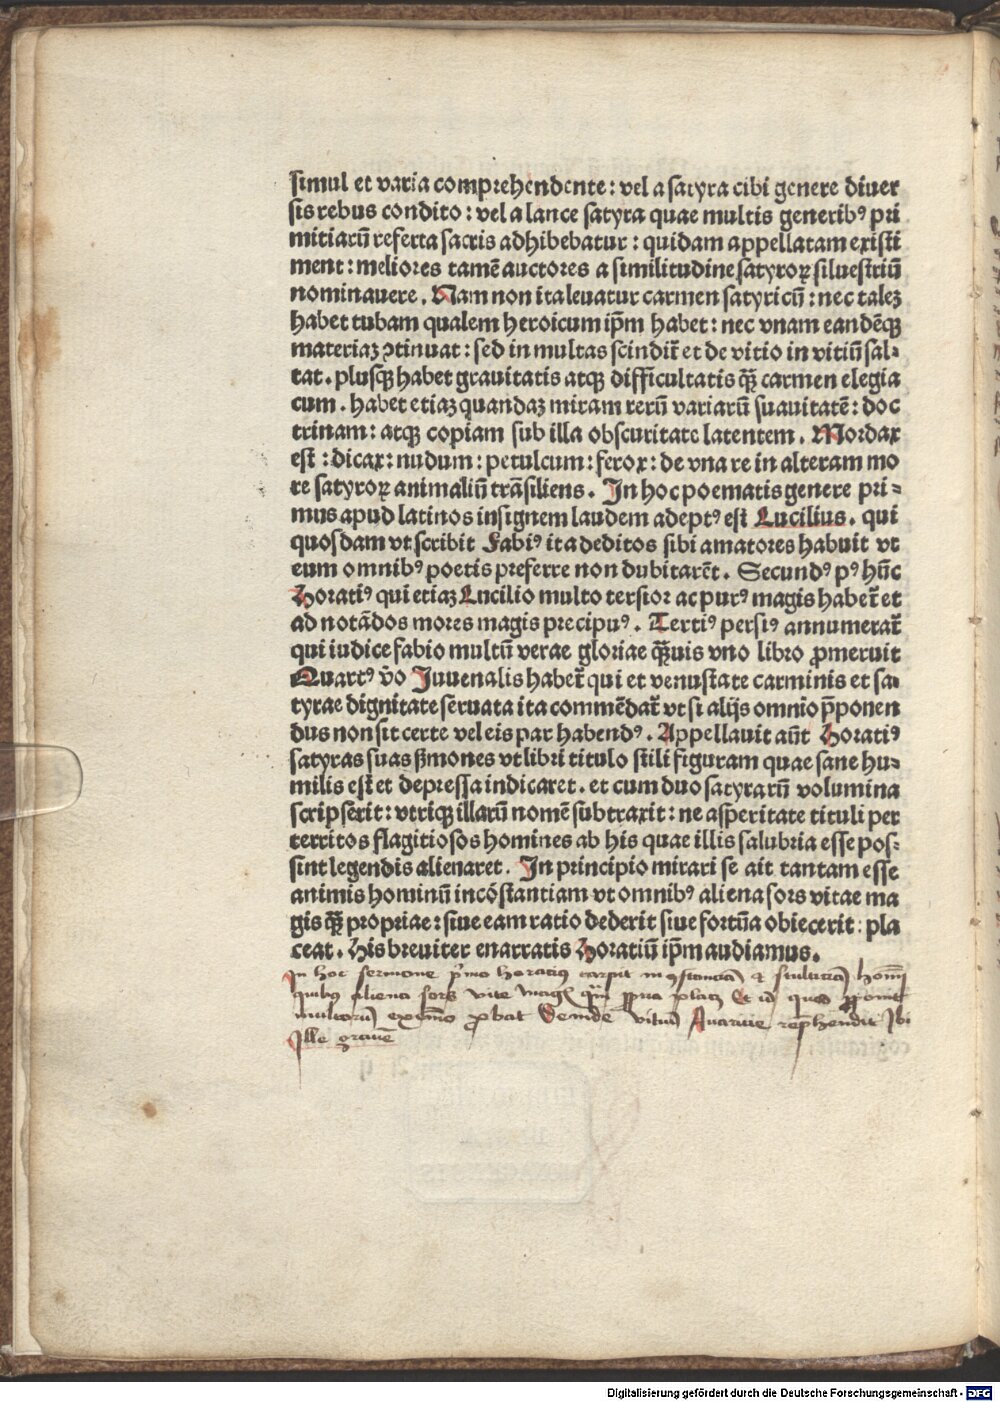 simul et varia comprehendente: vel a satyra cibi genere diuer
sis rebus condito: vel a lance satyra quae multis generibꝰ pri
mitiarū referta sacris adhibebatur: quidam appellatam existi
ment: meliores tamē auctores a similitudine satyroꝝ siluestriū
nominauere. Nam non ita leuatur carmen satyricū: nec taleꝫ
habet tubam qualem heroicum ip̄m habet: nec vnam eandēqꝫ
materiaꝫ ꝯtinuat: sed in multas scindit᷑ et de vitio in vitiū sal-
tat. plusqꝫ habet grauitatis atqꝫ difficultatis qꝫ̄ carmen elegia
cum. habet etiaꝫ quandaꝫ miram rerū variarū suauitatē: doc
trinam: atqꝫ copiam sub illa obscuritate latentem. Mordax
est: dicax: nudum: petulcum: ferox: de vna re in alteram mo
re satyroꝝ animaliū trāsiliens. In hoc poematis genere pri-
mus apud latinos insignem laudem adeptꝰ est Lucilius. qui
quosdam vt scribit Fabiꝰ ita deditos sibi amatores habuit vt
eum omnibꝰ poetis preferre non dubitarēt. Secundꝰ pꝰ hūc
Horatiꝰ qui etiaꝫ Lucilio multo tersior ac purꝰ magis habet᷑ et
ad notādos mores magis precipuꝰ. Tertiꝰ persiꝰ annumerat᷑
qui iudice fabio multū verae gloriae qꝫ̄uis vno libro ꝓmeruit
Quartꝰ v̄o Juuenalis habet᷑ qui et venustate carminis et sa-
tyrae dignitate seruata ita commēdat᷑ vt si alijs omnīo p̄ponen
dus non sit certe vel eis par habendꝰ. Appellauit aūt Horatiꝰ
satyras suas s̄mones vt libri titulo stili figuram quae sane hu-
milis est et depressa indicaret. et cum duo satyrarū volumina
scripserit: vtriqꝫ illarū nomē subtraxit: ne asperitate tituli per
territos flagitiosos homines ab his quae illis salubria esse pos-
sint legendis alienaret. In principio mirari se ait tantam esse
animis hominū incōstantiam vt omnibꝰ aliena sors vitae ma
gis qꝫ̄ propriae: siue eam ratio dederit siue fortūa obiecerit: pla
ceat. His breuiter enarratis Horatiū ip̄m audiamus.
In hoc sermone p̄mo horacius carpit inꝯstanciā et stulticiā homī
quibꝰ aliena sors vite magꝭ qꝫ̄ ꝓpria placꝫ Et id quod ꝓponit
multorū exēplo ꝓbat Deinde vitiū Auaricie rep̄hendit Ibi
Ille grauē
Digitalisierung gefördert durch die Deutsche Forschungsgemeinschaft - DFG